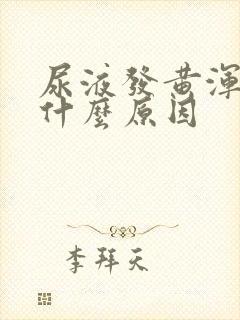 尿液發黃渾
什麼原因
李拜天